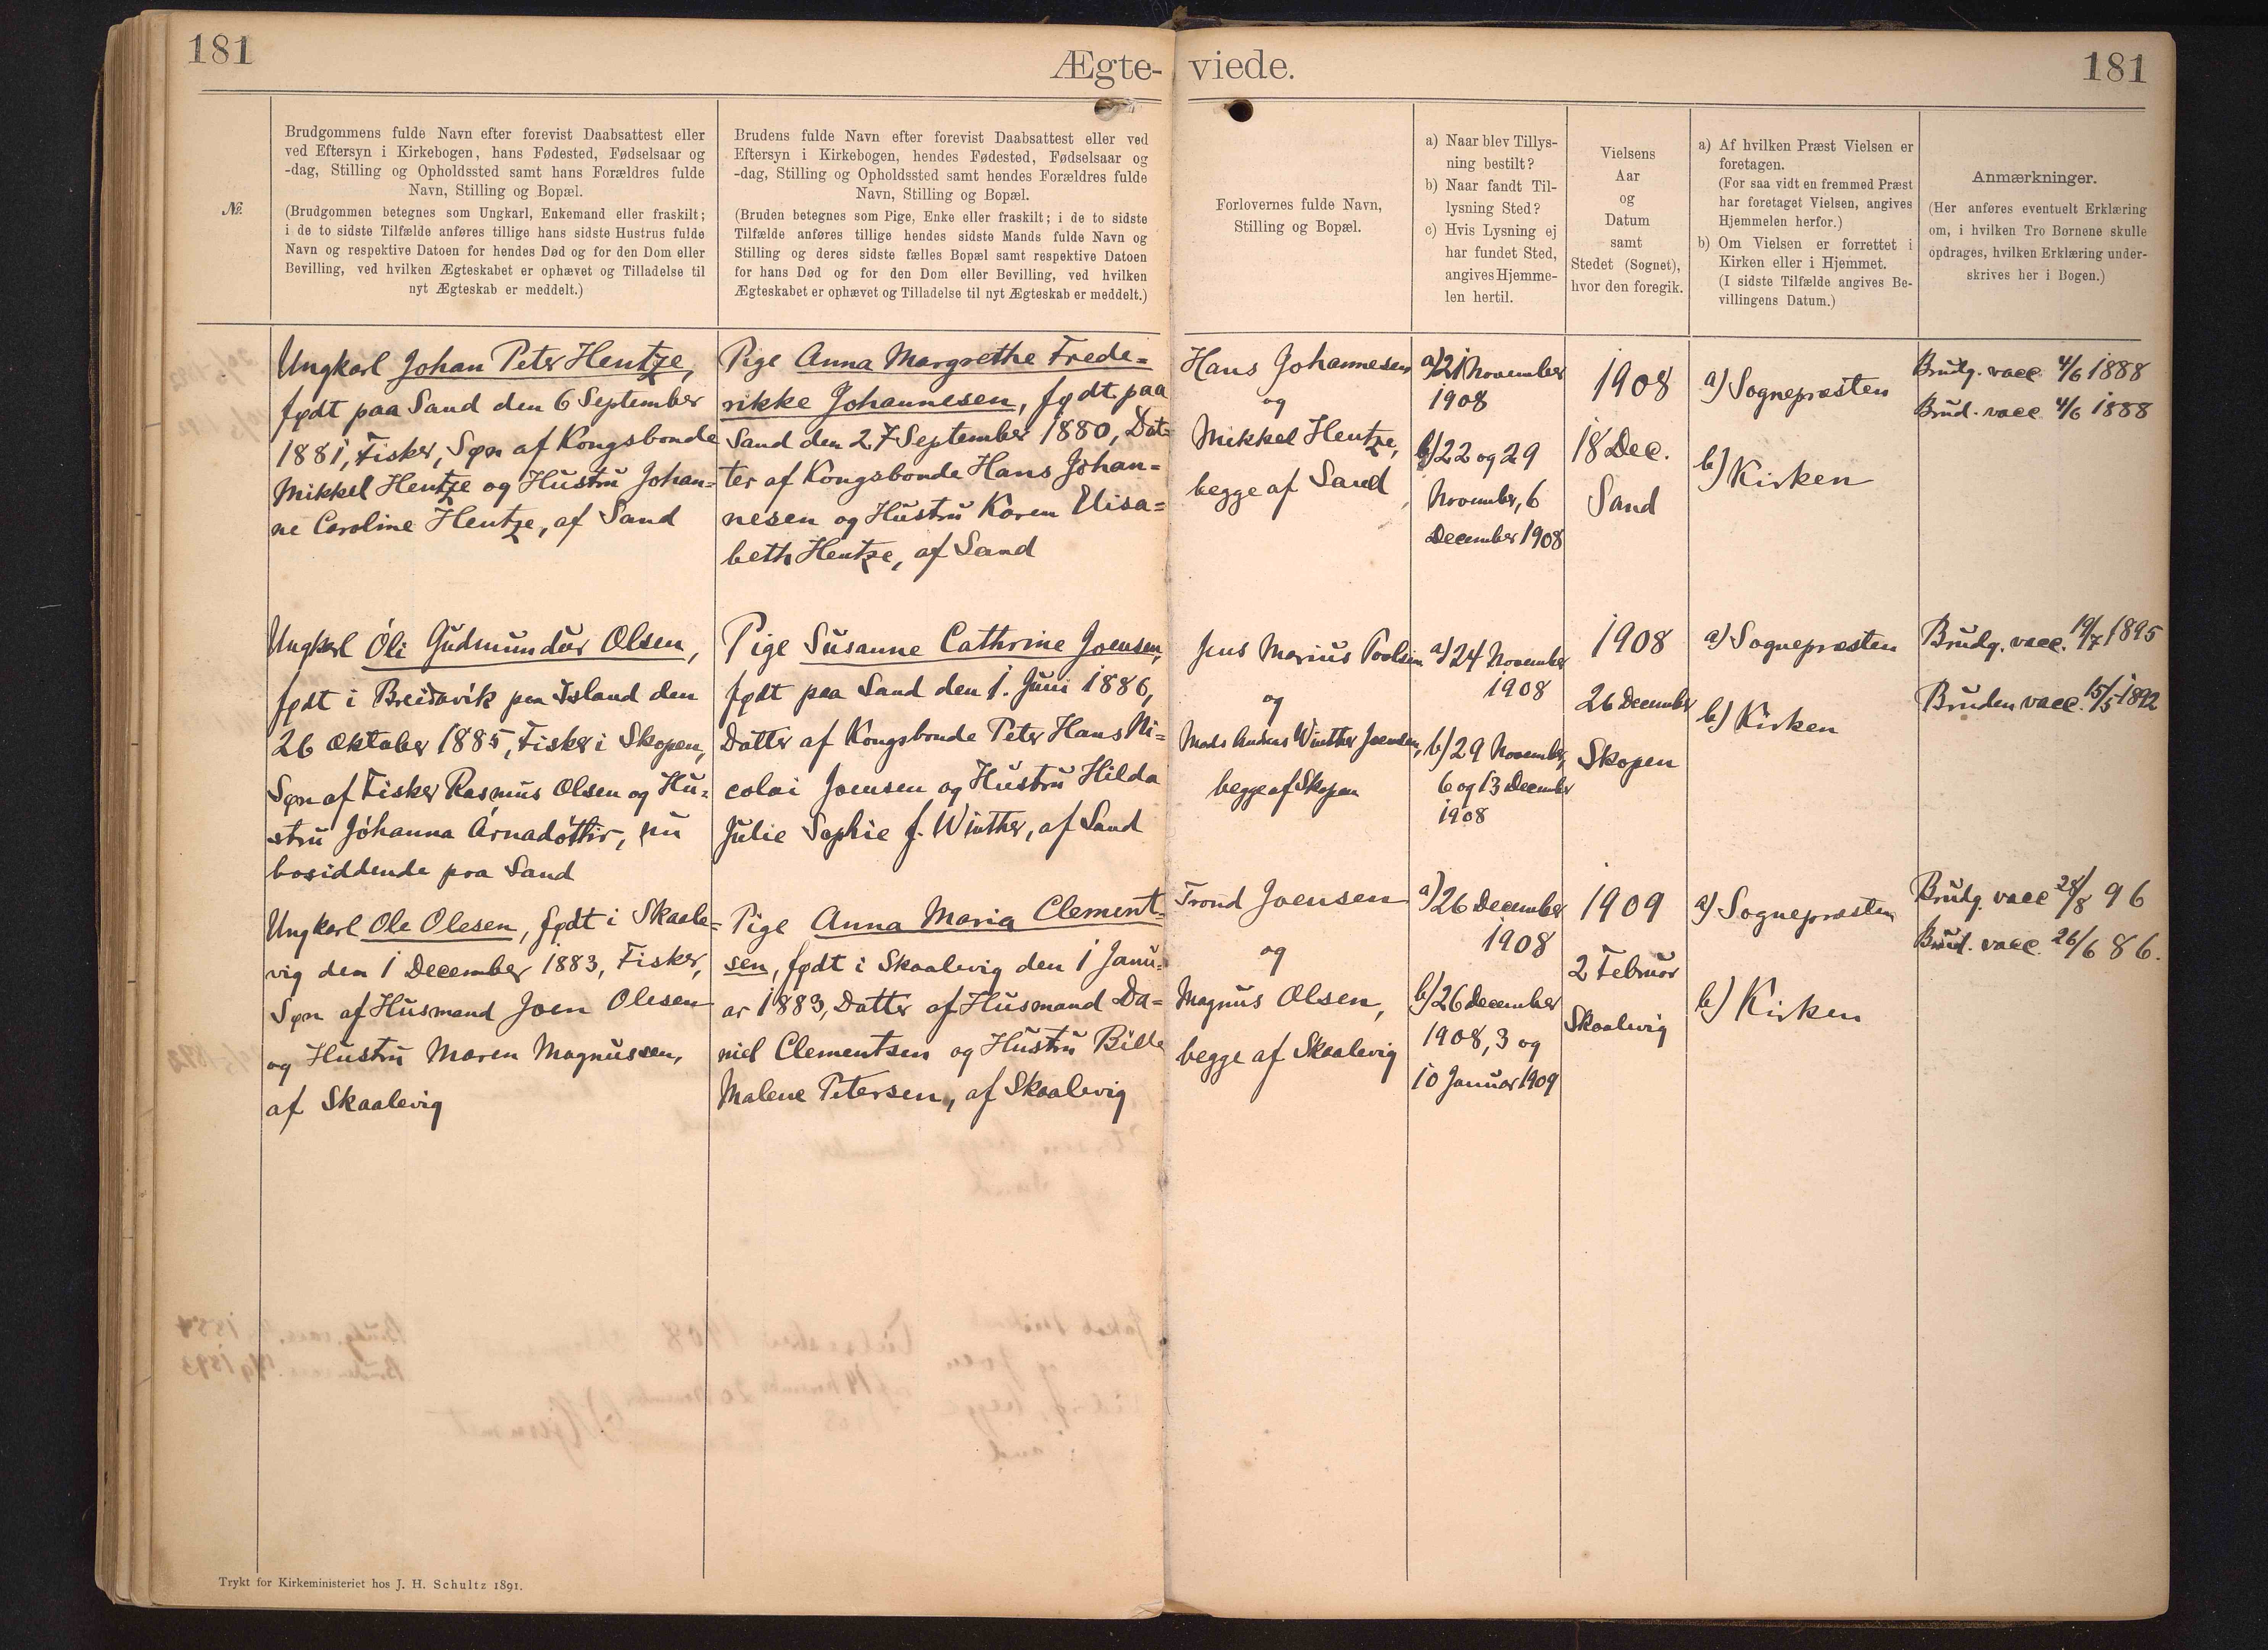 181
Ægte-
viede.
181
№.
Brudgommens fulde Navn efter forevist Daabsattest eller
ved Eftersyn i Kirkebogen, hans Fødested, Fødselsaar og
-dag, Stilling og Opholdssted samt hans Forældres fulde
Navn, Stilling og Bopæl.
(Brudgommen betegnes som Ungkarl, Enkemand eller fraskilt;
i de to sidste Tilfælde anføres tillige hans sidste Hustrus fulde
Navn og respektive Datoen for hendes Død og for den Dom eller
Bevilling, ved hvilken Ægteskabet er ophævet og Tilladelse til
nyt Ægteskab er meddelt.)
Brudens fulde Navn efter forevist Daabsattest eller ved
Eftersyn i Kirkebogen, hendes Fødested, Fødselsaar og
-dag, Stilling og Opholdssted samt hendes Forældres fulde
Navn, Stilling og Bopæl.
(Bruden betegnes som Pige, Enke eller fraskilt; i de to sidste
Tilfælde anføres tillige hendes sidste Mands fulde Navn og
Stilling og deres sidste fælles Bopæl samt respektive Datoen
for hans Død og for den Dom eller Bevilling, ved hvilken
Ægteskabet er ophævet og Tilladelse til nyt Ægteskab er meddelt.)
Forlovernes fulde Navn,
Stilling og Bopæl.
a) Naar blev Tillys-
ning bestilt?
b) Naar fandt Til-
lysning Sted?
c) Hvis Lysning ej
har fundet Sted,
angives Hjemme-
len hertil.
Vielsens
Aar
og
Datum
samt
Stedet (Sognet),
hvor den foregik.
a) Af hvilken Præst Vielsen er
foretagen.
(For saa vidt en fremmed Præst
har foretaget Vielsen, angives
Hjemmelen herfor.)
b) Om Vielsen er forrettet i
Kirken eller i Hjemmet.
(I sidste Tilfælde angives Be-
villingens Datum.)
Anmærkninger.
(Her anføres eventuelt Erklæring
om, i hvilken Tro Børnene skulle
opdrages, hvilken Erklæring under-
skrives her i Bogen.)
Ungkarl Johan Peter Hentze,
født paa Sand den 6 September
1881, Fisker, Søn af Kongsbonde
Mikkel Hentze og Hustru Johan=
ne Caroline Hentze, af Sand
Pige Anna Margrethe Frede=
rikke Johannesen, født paa
Sand den 27 September 1880, Dat=
ter af Kongsbonde Hans Johan=
nesen og Hustru Karen Elisa=
beth Hentze, af Sand
Hans Johannesen
og
Mikkel Hentze,
begge af Sand
a) 21 November
1908
b) 22 og 29
November, 6
December 1908
1908
18 Dec.
Sand
a) Sognepræsten
b) Kirken
Brudg. vacc. 4/6 1888
Brud. vacc 4/6 1888
Ungkarl Óli Gudmundur Olsen,
født i Breidavík paa Island den
26 Oktober 1885, Fisker i Skopen,
Søn af Fisker Rasmus Olsen og Hu=
stru Jóhanna Árnadóttir, nu
bosiddende paa Sand
Pige Susanne Cathrine Joensen,
født paa Sand den 1. Juni 1886,
Datter af Kongsbonde Peter Hans Ni=
colai Joensen og Hustru Hilda
Julie Sophie f. Winther, af Sand
Jens Marius Poulsen
og
Mads Andreas Winther Joensen,
begge af Skopen
a) 24 November
1908
b) 29 November,
6 og 13 December
1908
1908
26 December
Skopen
a) Sognepræsten
b) Kirken
Brudg. vacc. 19/7 1895
Bruden vacc. 15/5 1892
Ungkarl Ole Olesen, født i Skaale=
vig den 1 December 1883, Fisker,
Søn af Husmand Joen Olesen
og Hustru Maren Magnussen,
af Skaalevig
Pige Anna Maria Clement=
sen, født i Skaalevig den 1 Janu=
ar 1883, Datter af Husmand Da=
niel Clementsen og Hustru Bille
Malene Petersen, af Skaalevig
Trond Joensen
og
Magnus Olsen,
begge af Skaalevig
a) 26 December
1908
b) 26 December
1908, 3 og
10 Januar 1909
1909
2 Februar
Skaalevig
a) Sognepræsten
b) Kirken
Brudg. vacc 28/8 96
Brud. vacc. 26/6 86.
Trykt for Kirkeministeriet hos J. H. Schultz 1891.